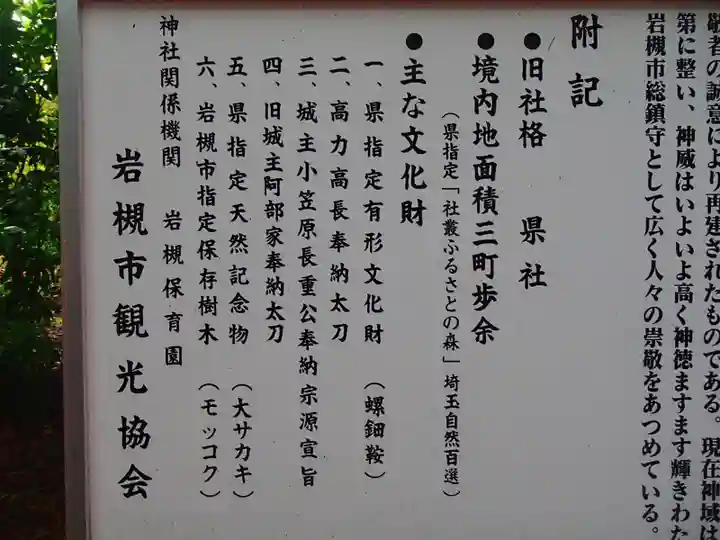 敬者の誠意により再建されたものである。現在神域は
第に整い、神威はいよいよ高く神徳ますます輝きわた
岩槻市総鎮守として広く人々の崇敬をあつめている。
附記
●旧社格　県社
●境内地面積三町歩余
（県指定「社叢ふるさとの森」埼玉自然百選）
●主な文化財
一、県指定有形文化財（螺鈿鞍）
二、高力高長奉納太刀
三、城主小笠原長重公奉納宗源宣旨
四、旧城主阿部家奉納太刀
五、県指定天然記念物（大サカキ）
六、岩槻市指定保存樹木（モッコク）
神社関係機関　岩槻保育園
岩槻市観光協会